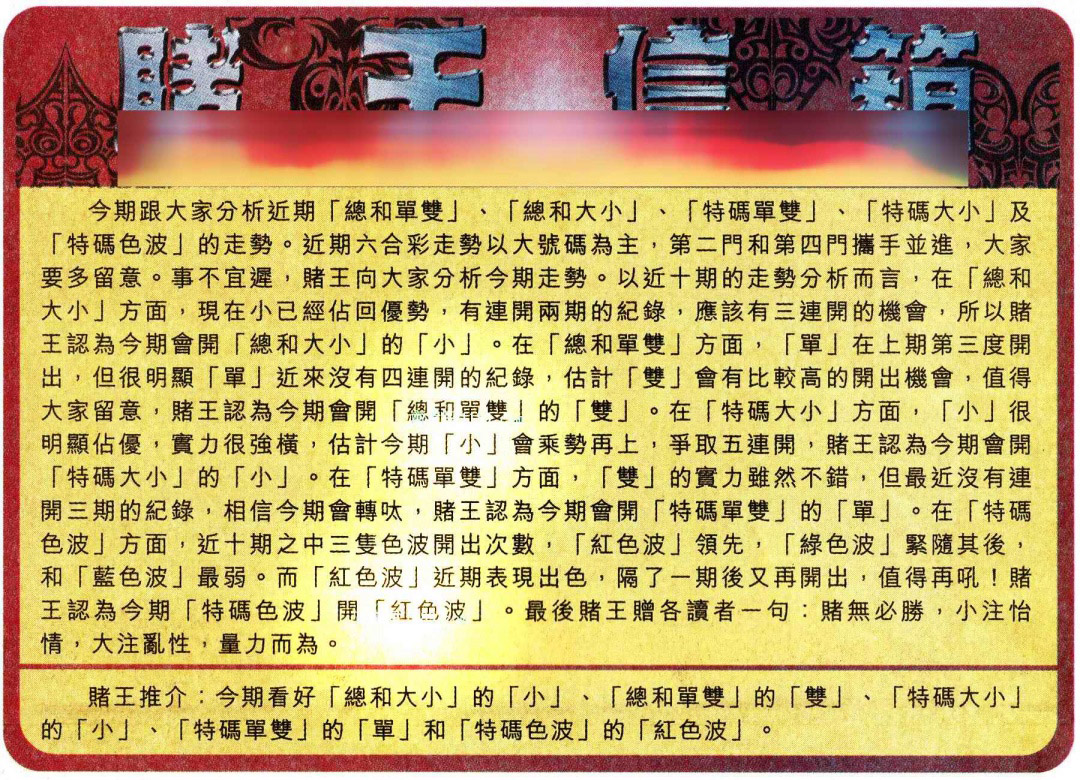 賭王信箱
今期跟大家分析近期「總和單雙」、「總和大小」、「特碼單雙」、「特碼大小」及
「特碼色波」的走勢。近期六合彩走勢以大號碼為主，第二門和第四門攜手並進，大家
要多留意。事不宜遲，賭王向大家分析今期走勢。以近十期的走勢分析而言，在「總和
大小」方面，現在小已經佔回優勢，有連開兩期的紀錄，應該有三連開的機會，所以賭
王認為今期會開「總和大小」的「小」。在「總和單雙」方面，「單」在上期第三度開
出，但很明顯「單」近來沒有四連開的紀錄，估計「雙」會有比較高的開出機會，值得
大家留意，賭王認為今期會開「總和單雙」的「雙」。在「特碼大小」方面，「小」很
明顯佔優，實力很強橫，估計今期「小」會乘勢再上，爭取五連開，賭王認為今期會開
「特碼大小」的「小」。在「特碼單雙」方面，「雙」的實力雖然不錯，但最近沒有連
開三期的紀錄，相信今期會轉呔，賭王認為今期會開「特碼單雙」的「單」。在「特碼
色波」方面，近十期之中三隻色波開出次數，「紅色波」領先，「綠色波」緊隨其後，
和「藍色波」最弱。而「紅色波」近期表現出色，隔了一期後又再開出，值得再吼！賭
王認為今期「特碼色波」開「紅色波」。最後賭王贈各讀者一句：賭無必勝，小注怡
情，大注亂性，量力而為。
賭王推介：今期看好「總和大小」的「小」、「總和單雙」的「雙」、「特碼大小」
的「小」、「特碼單雙」的「單」和「特碼色波」的「紅色波」。